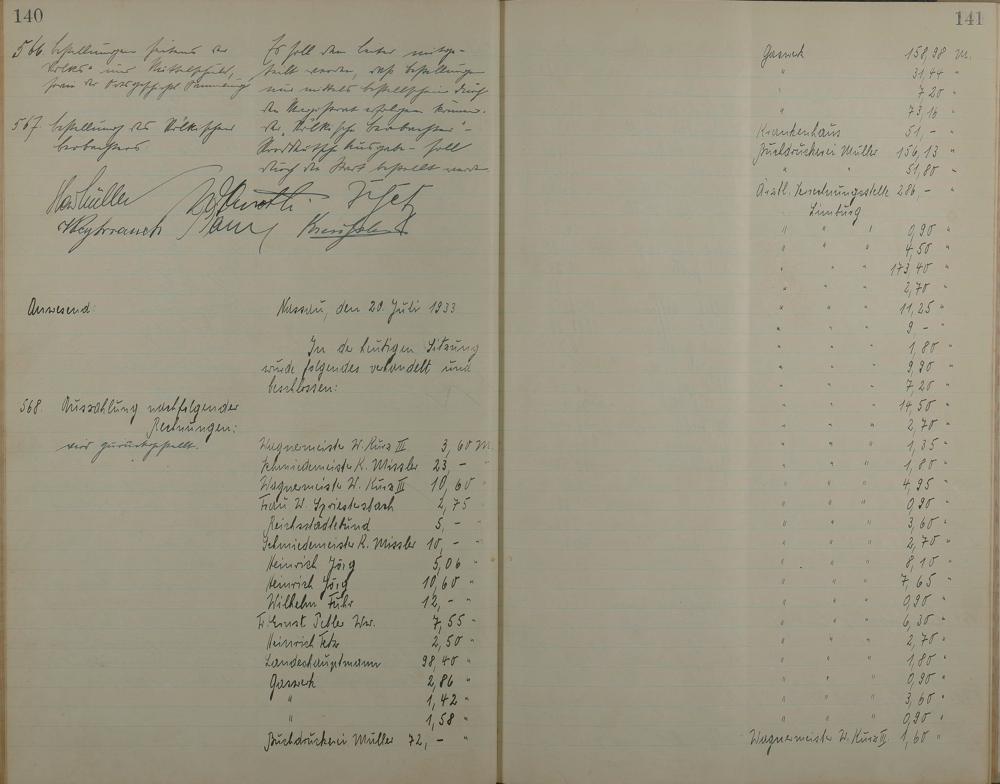 140
566. Bestellungen seitens der
Volks- und Mittelschule,
Es soll den Leiter mitge-
teilt werden, daß Bestellungen
nur mittels Bestellschein durch
den Magistrat erfolgen können.
567. Bestellung des Völkischen
Beobachters
Der "Völkische Beobachter"-
Norddeutsche Ausgabe- soll
durch die Stadt bestellt werden
Anwesend:
Nassau, den 20. Juli 1933
In der heutigen Sitzung
wurde folgendes verhandelt und
beschlossen:
568. Auszahlung nachfolgender
Rechnungen:
wird zurückgestellt.
Wagnermeister W. Kurz III 3,60 M.
Schmiedemeister K. Missler 23,- "
Wagnermeister W. Kurz III 10,60 "
Frau W. Spriestersbach 2,75 "
Reichsstädtebund 5,- "
Schmiedemeister K. Missler 10,- "
Heinrich Jörg 5,06 "
Heinrich Jörg 10,60 "
Wilhelm Fuhr 12,- "
Ernst Wwe. 7,55 "
Heinrich 2,50 "
Landeshauptmann 98,40 "
Gaswerk 2,86 "
" 1,42 "
" 1,58 "
Buchdruckerei Müller 72,- "
141
Gaswerk 158,98 M.
" 31,44 "
" 7,20 "
" 73,16 "
Krankenhaus 51,- "
Buchdruckerei Müller 156,13 "
" " 51,80 "
Ärztl. Verrechnungsstelle 286,- "
Limburg
" " " 0,90 "
" " " 4,50 "
" " " 173,40 "
" " " 2,70 "
" " " 11,25 "
" " " 9,- "
" " " 1,80 "
" " " 9,90 "
" " " 7,20 "
" " " 14,50 "
" " " 2,70 "
" " " 1,35 "
" " " 1,80 "
" " " 4,95 "
" " " 0,90 "
" " " 3,60 "
" " " 2,70 "
" " " 8,10 "
" " " 7,65 "
" " " 0,90 "
" " " 6,30 "
" " " 2,70 "
" " " 1,80 "
" " " 0,90 "
" " " 3,60 "
" " " 0,90 "
Wagnermeister W. Kurz III 1,60 "